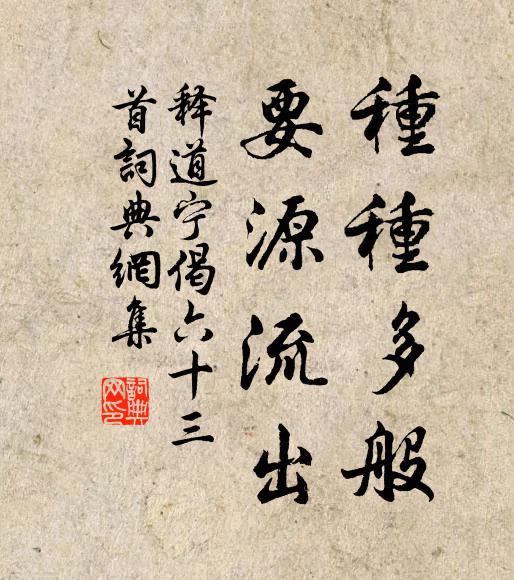 種種多般
要源流出
释道宁偈六十三
首詞典網集
詞典
网印